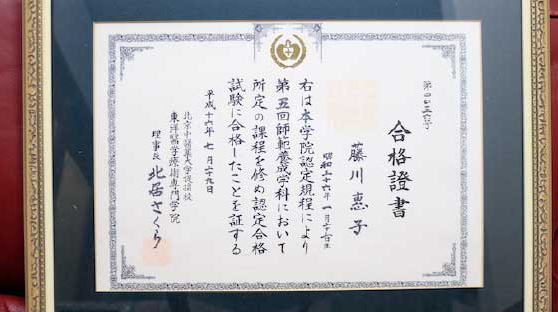 合格證書
藤川惠子
昭和三十六年一月二十七日生
右は本学院認定規程により
第五回師範養成学科において
所定の課程を修め認定合格
試験に合格したことを証する
平成十六年七月二十九日
北京中醫薬大学提携校
東洋醫学療術専門学院
理事長 北居さくら